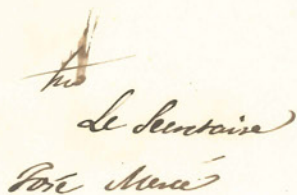 Le Secretaire
José Mercé